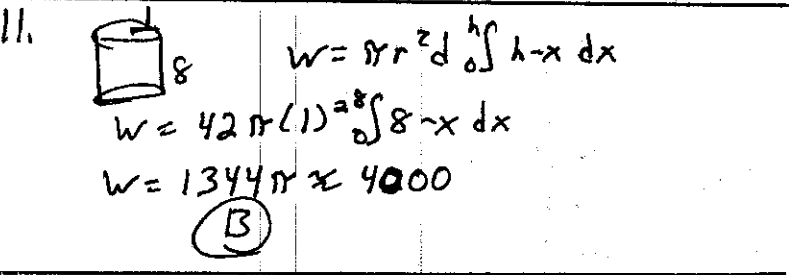 11.
8
W = πr²d ₀∫ʰ h-x dx
W = 42π(1)² ₀∫⁸ 8-x dx
W = 1344π ≈ 4000
B